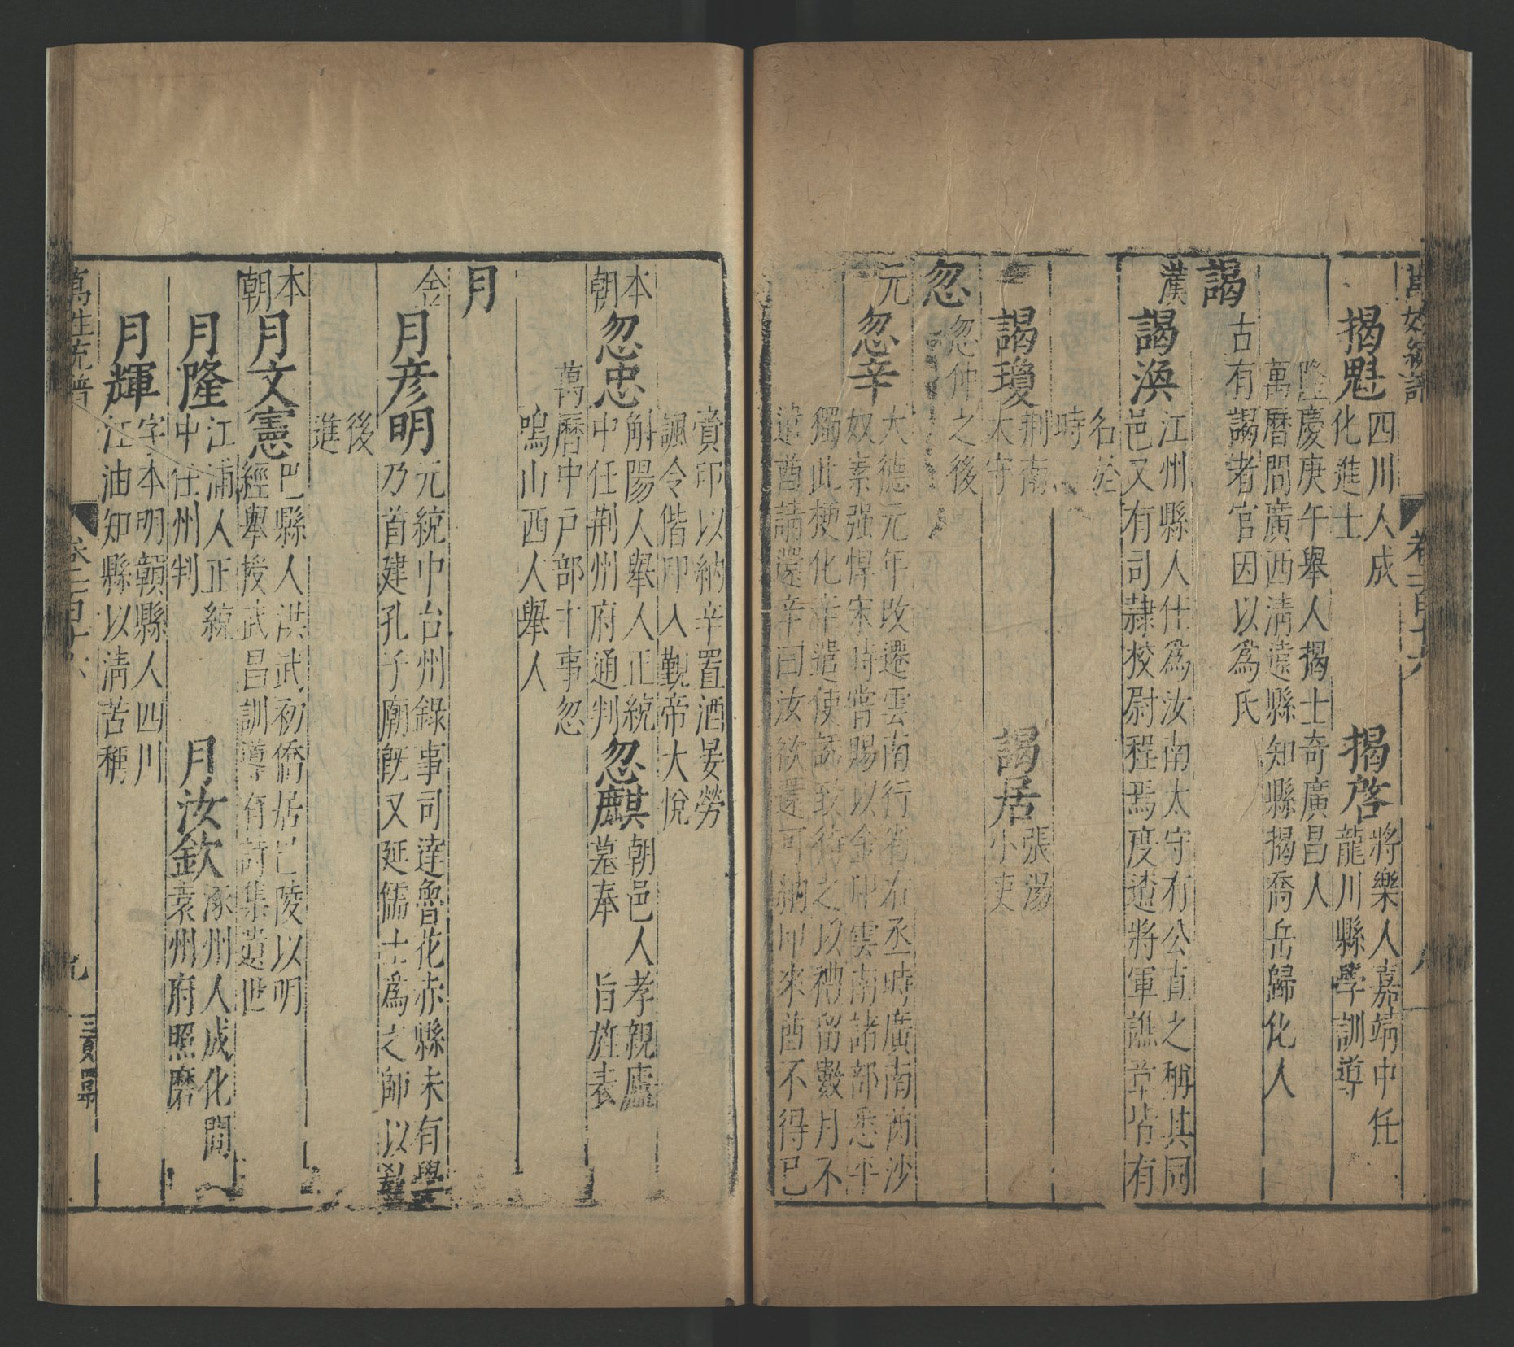 萬姓統譜 卷一百十六 八
揭魁 四川人成
化進士
揭啓 將樂人嘉靖中任
龍川縣學訓導
隆慶庚午舉人揭士奇廣昌人
萬曆間廣西清遠縣知縣揭喬岳歸化人
謁
古有謁者官因以為氏
漢
謁渙 江州縣人仕為汝南太守有公直之稱其同
邑又有司隷校尉程焉度遼將軍譙章皆有
名於
時
謁瓊 荆南
太守
謁居 張湯
小吏
忽
忽仲之後
元
忽辛 大德元年改遷雲南行省右丞時廣南酋沙
奴素强悍宋時嘗賜以金印雲南諸部悉平
獨此梗化辛遣使誘致待之以禮留數月不
遠酋請還辛曰汝欲還可納印來酋不得已
賫印以納辛置酒晏勞
諷令偕印入覲帝大悅
本朝
忽忠 斛陽人舉人正統
中任荆州府通判
忽麒 朝邑人孝親廬
墓奉 旨旌表
萬曆中戶部主事忽
鳴山西人舉人
月
金
月彦明 元統中台州錄事司達魯花赤縣未有學
乃首建孔子廟既又延儒士為之師以敎
後
進
本朝
月文憲 巴縣人洪武初僑居巴陵以明
經舉授武昌訓導有詩集遺世
月隆 江浦人正統
中任州判
月汝欽 涿州人成化間
袁州府照磨
月輝 字本明額縣人四川
江油知縣以清苦稱
萬姓統譜 卷一百十六 九